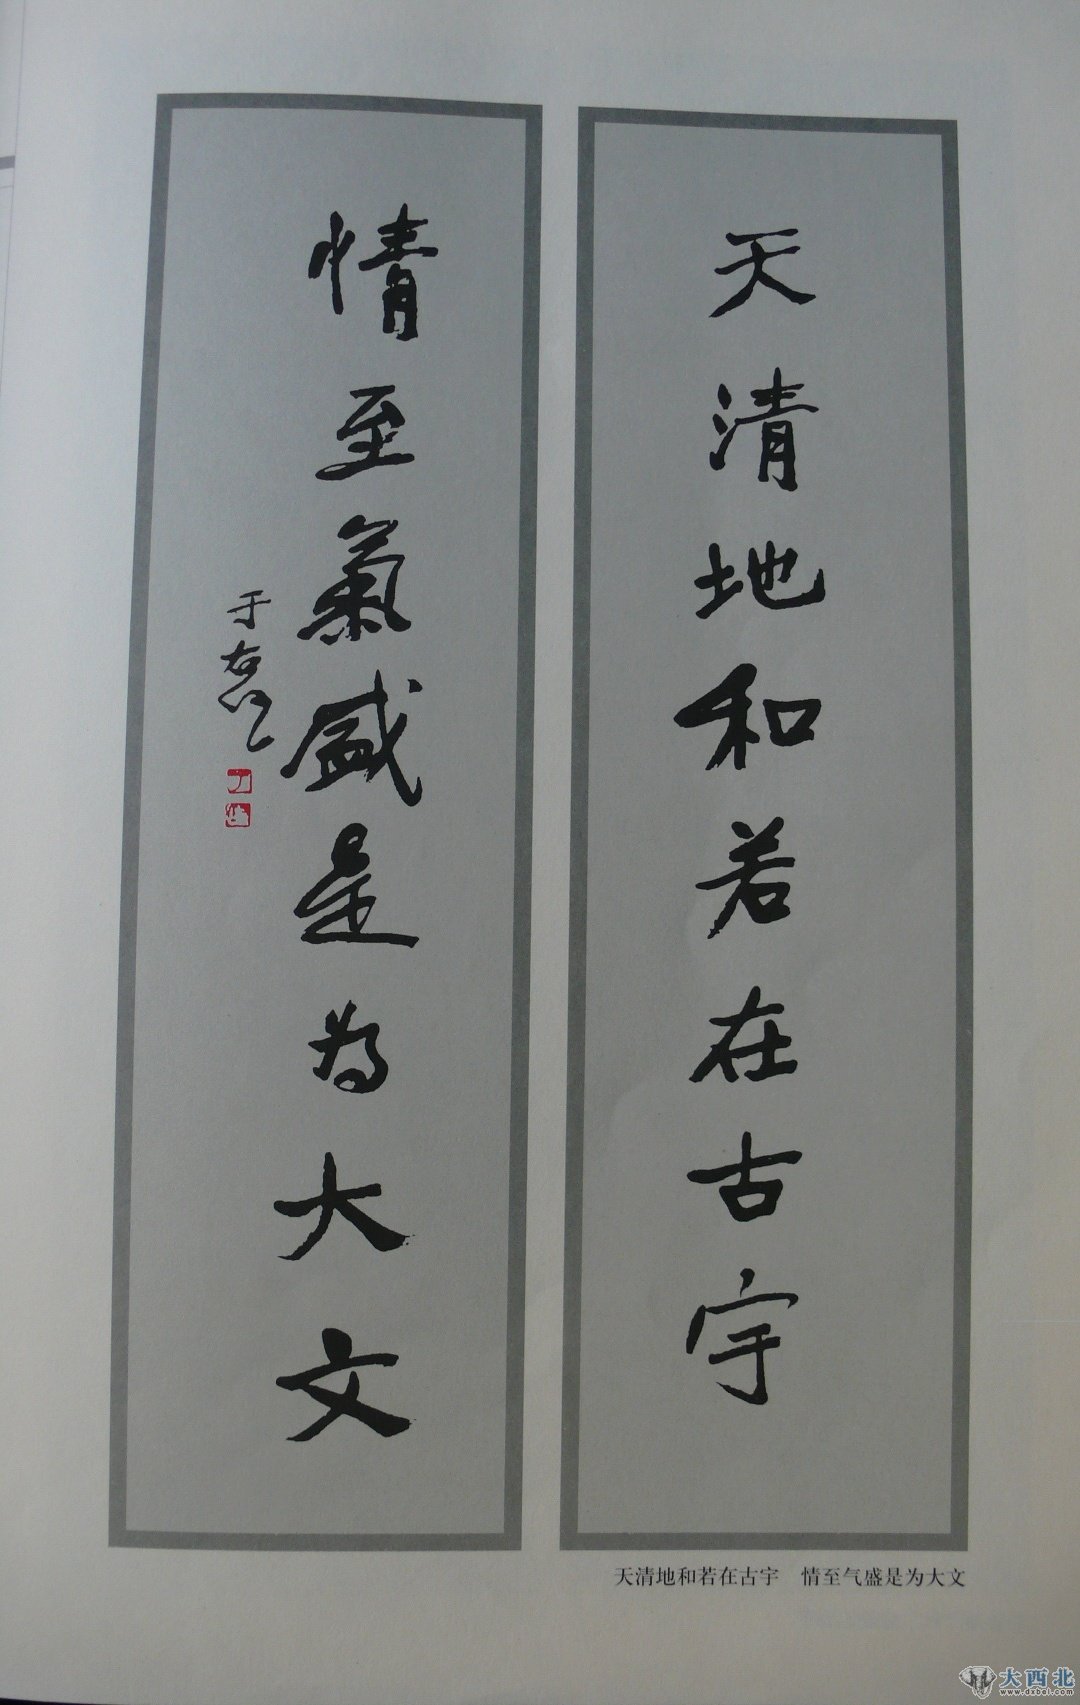 天清地和若在古宇
情至氣盛是為大文
于右任
天清地和若在古宇　情至气盛是为大文
大西北
www.dxbei.com